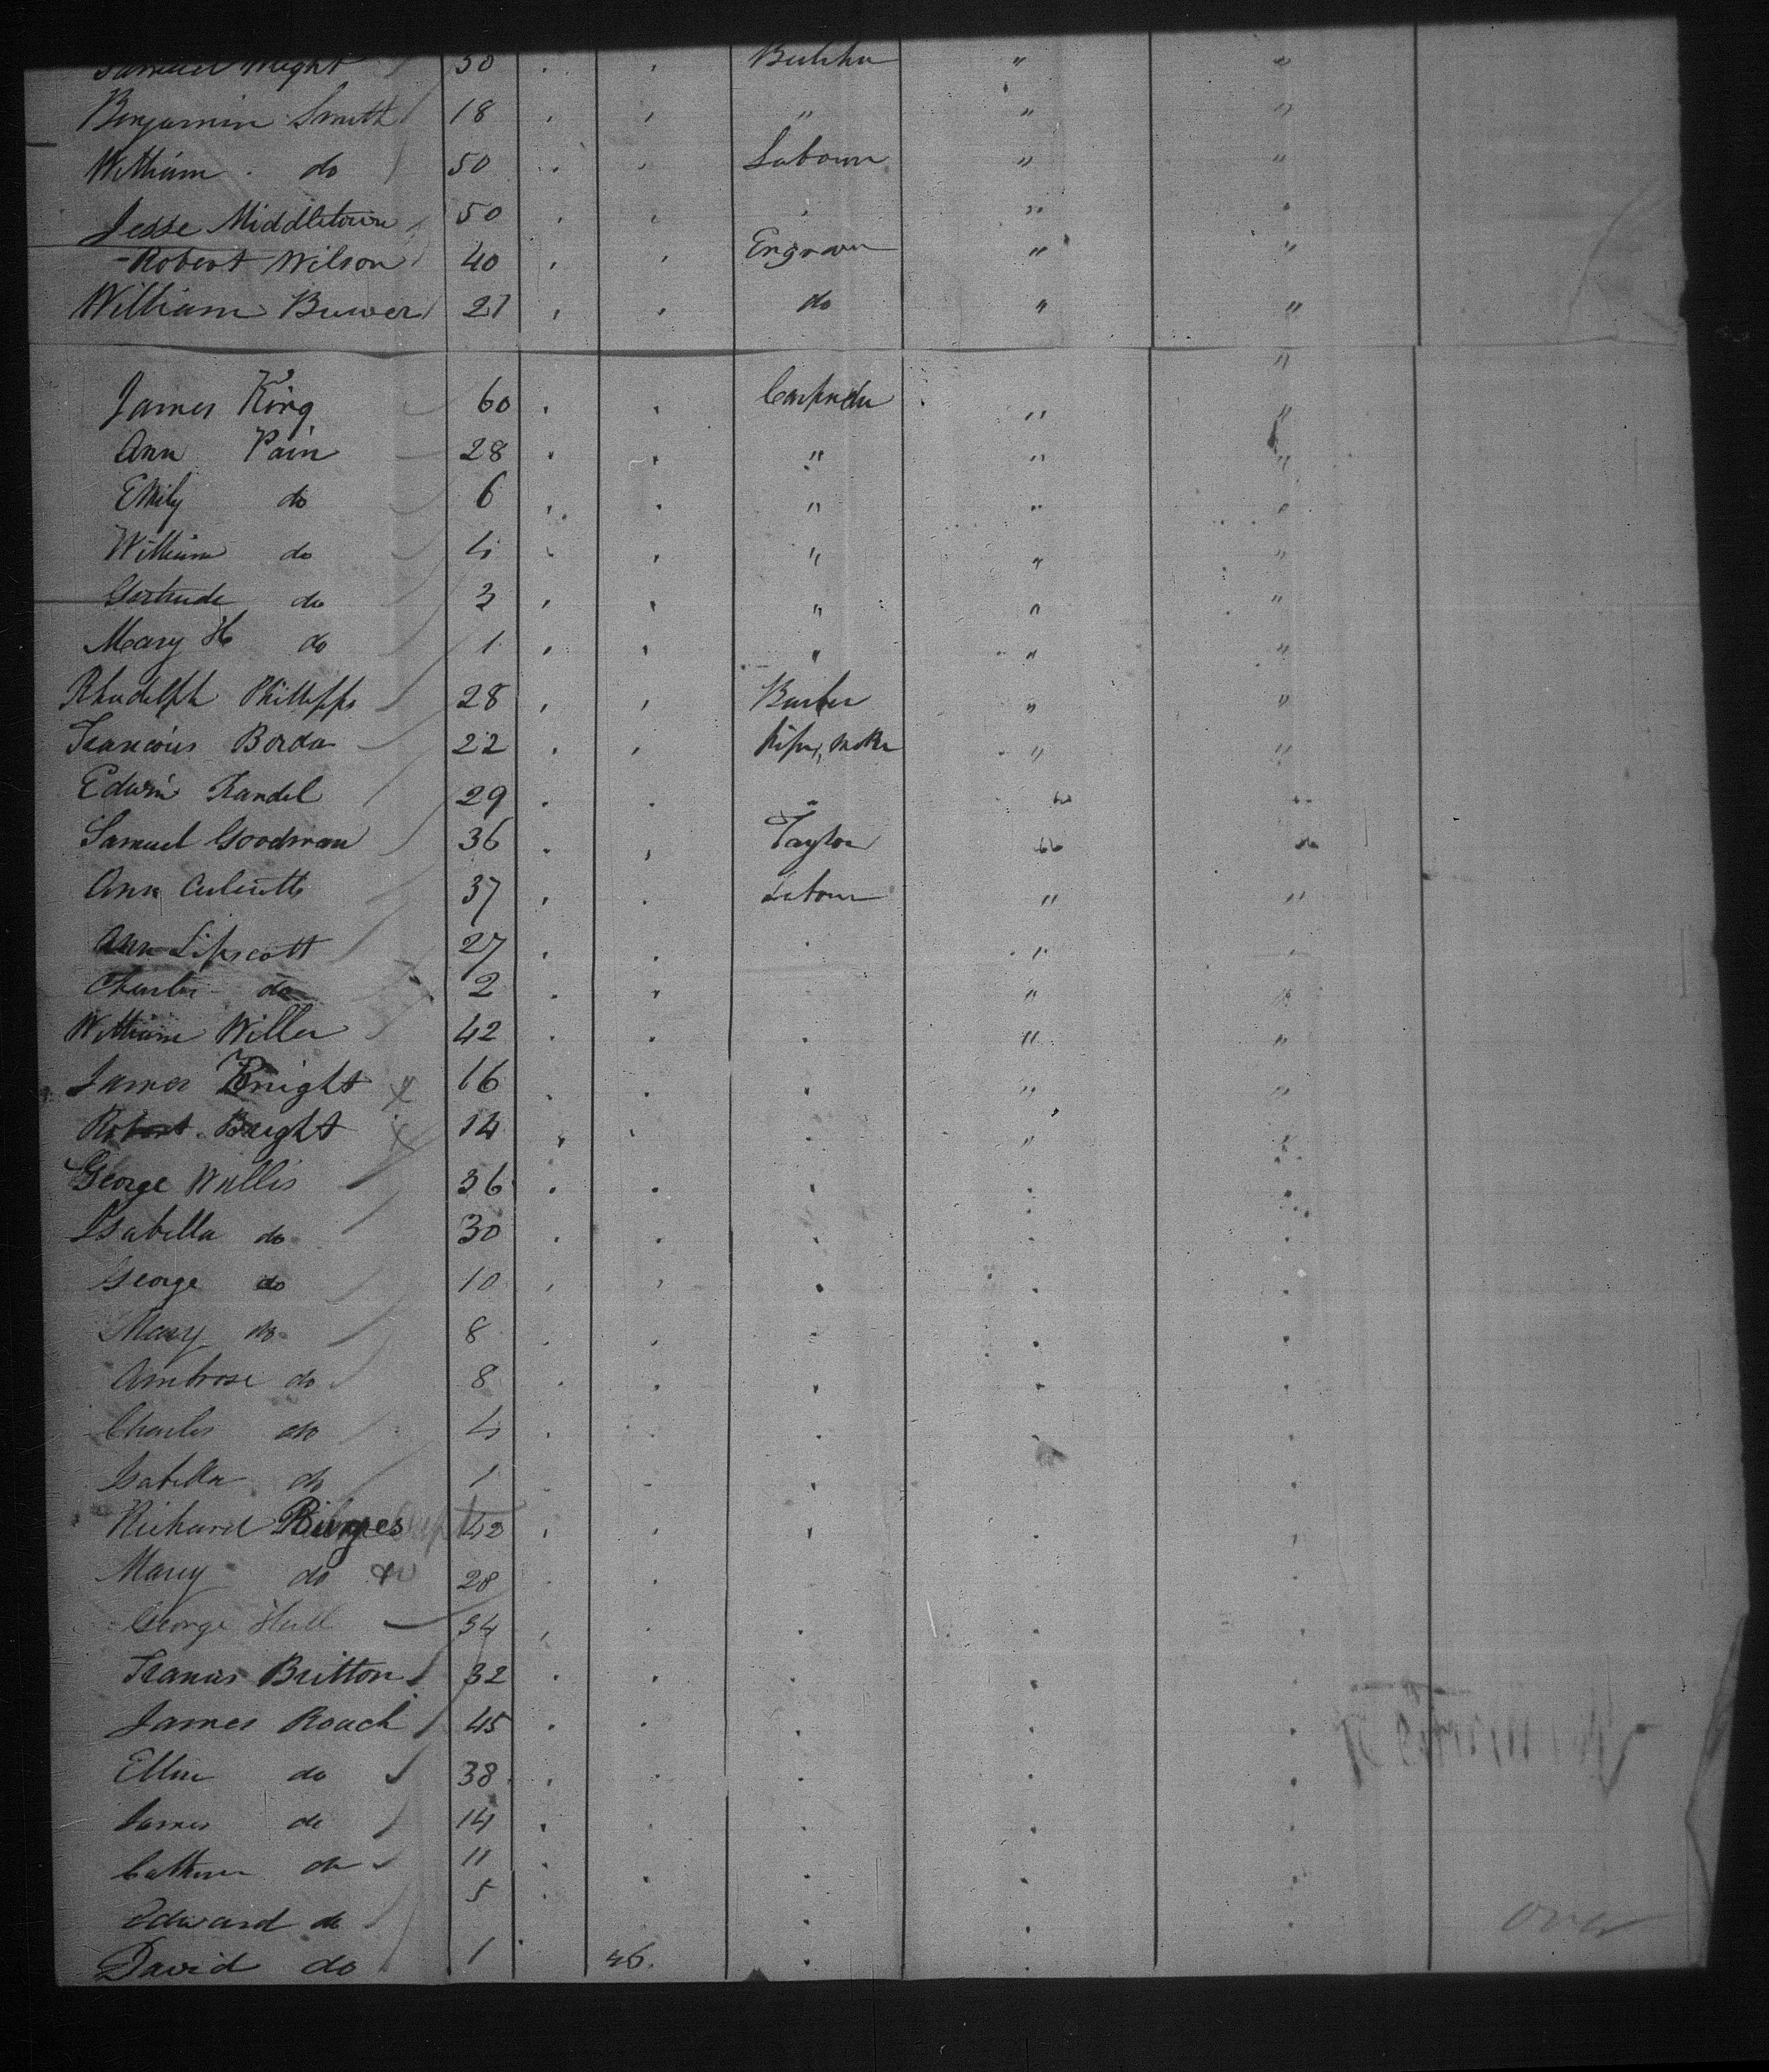 Samuel Wright 30 Butcher " "
Benjamin Smith 18 " " "
William do 50 Labour " "
Jesse Middletown 50 " "
Robert Wilson 40 Engraver " "
William Buwer 21 do " "
"
James King 60 Carpnder " "
Ann Pain 28 " " "
Emily do 6 " " "
William do 4 " " "
Gertrude do 3 " " "
Mary H do 1 " " "
Rhudelph Phillipps 28 Barber " "
Francois Borda 22 " "
Edwin Randel 29 " " "
Samuel Goodman 36 Taylor " "
Ann 37 Labour " "
Ann Lipscott 27 " "
Charles do 2 " "
William Willer 42 " "
James Knight 16 " "
Robert Bright 14 " "
George Wullis 36
Isabella do 30
George do 10
Mary do 8
Ambrose do 8
Charles do 4
Isabella do 1
Richard Burges 42
Mary do 28
George Hull 34
Francis Britton 32
James Roach 45
Ellen do 38
James do 14
do 11
Edward do 5
David do 1 46.
over